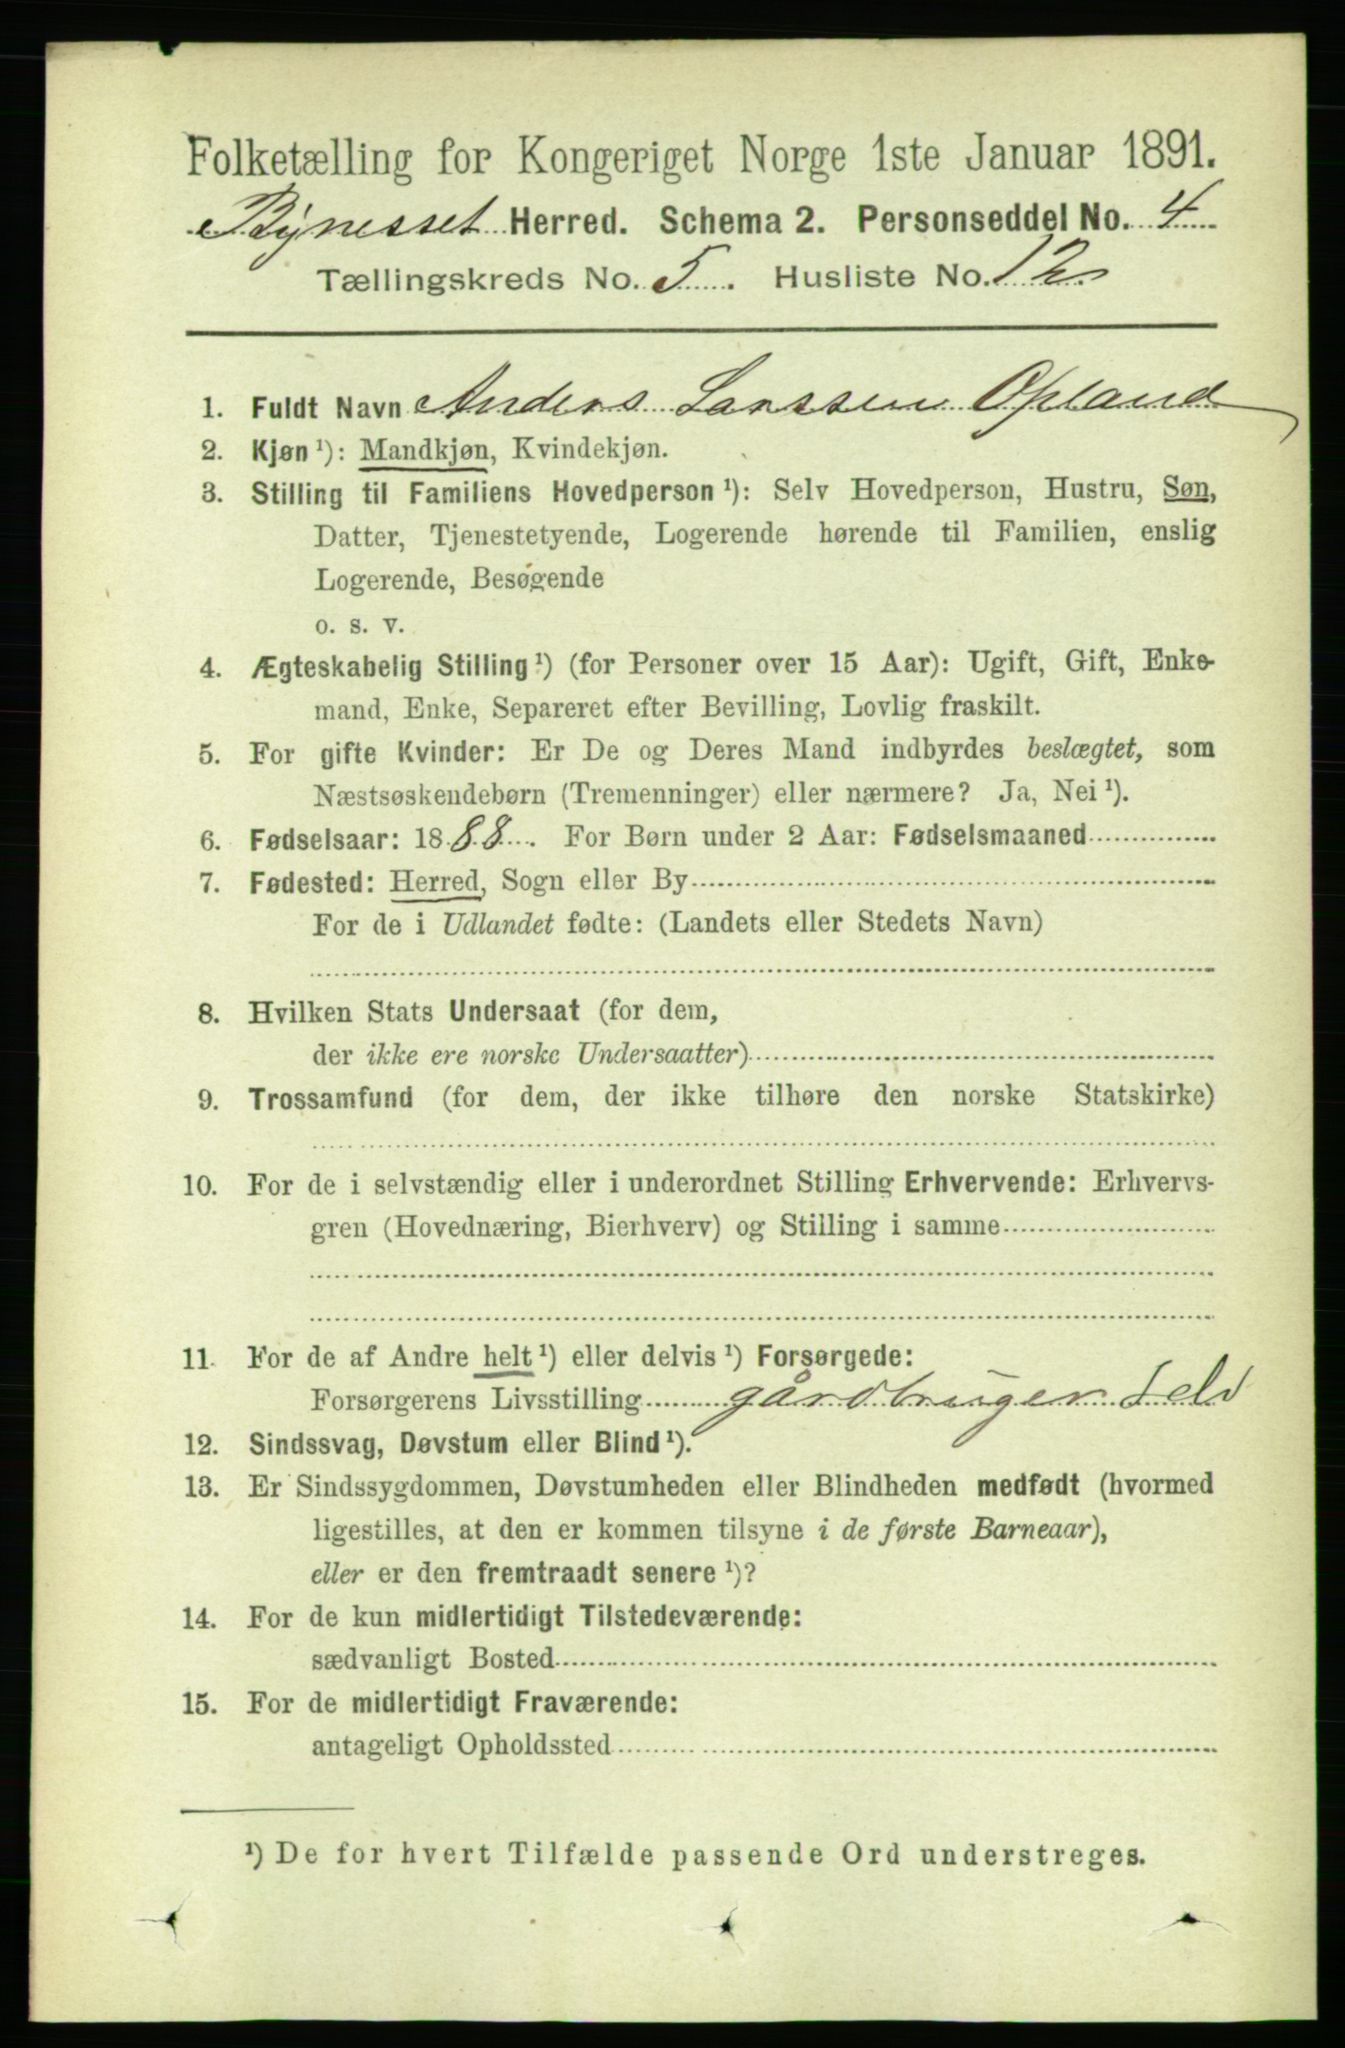 Folketælling for Kongeriget Norge 1ste Januar 1891.
Bynesset Herred. Schema 2. Personseddel No. 4
Tællingskreds No. 5. Husliste No. 12
1. Fuldt Navn Anders Larssen Opland
2. Kjøn ¹): Mandkjøn, Kvindekjøn.
3. Stilling til Familiens Hovedperson ¹): Selv Hovedperson, Hustru, Søn,
Datter, Tjenestetyende, Logerende hørende til Familien, enslig
Logerende, Besøgende
o. s. v.
4. Ægteskabelig Stilling ¹) (for Personer over 15 Aar): Ugift, Gift, Enke-
mand, Enke, Separeret efter Bevilling, Lovlig fraskilt.
5. For gifte Kvinder: Er De og Deres Mand indbyrdes beslægtet, som
Næstsøskendebørn (Tremenninger) eller nærmere? Ja, Nei ¹).
6. Fødselsaar: 1888. For Børn under 2 Aar: Fødselsmaaned
7. Fødested: Herred, Sogn eller By
For de i Udlandet fødte: (Landets eller Stedets Navn)
8. Hvilken Stats Undersaat (for dem,
der ikke ere norske Undersaatter)
9. Trossamfund (for dem, der ikke tilhøre den norske Statskirke)
10. For de i selvstændig eller i underordnet Stilling Erhvervende: Erhvervs-
gren (Hovednæring, Bierhverv) og Stilling i samme
11. For de af Andre helt ¹) eller delvis ¹) Forsørgede:
Forsørgerens Livsstilling gårdbruger Selv
12. Sindssvag, Døvstum eller Blind ¹).
13. Er Sindssygdommen, Døvstumheden eller Blindheden medfødt (hvormed
ligestilles, at den er kommen tilsyne i de første Barneaar),
eller er den fremtraadt senere ¹)?
14. For de kun midlertidigt Tilstedeværende:
sædvanligt Bosted
15. For de midlertidigt Fraværende:
antageligt Opholdssted
¹) De for hvert Tilfælde passende Ord understreges.